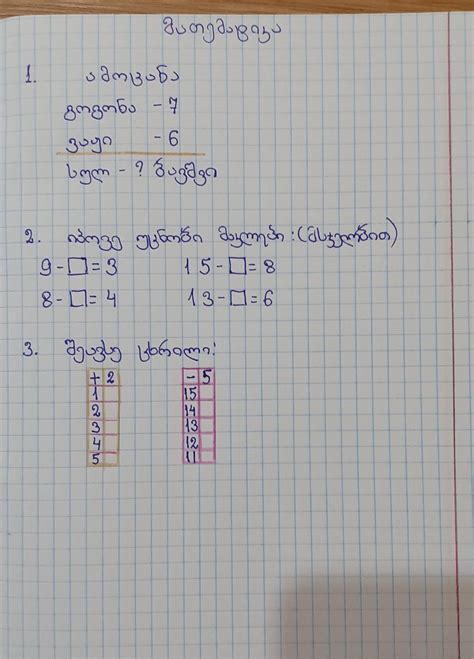 მათემატიკა
1. ამოცანა
გოგონა - 7
ვაჟი - 6
სულ - ? ბავშვი
2. იპოვე უცნობი მაკლები: (მსჯელობით)
9 - □ = 3 15 - □ = 8
8 - □ = 4 13 - □ = 6
3. შეავსე ცხრილი!
+ 2 - 5
1 15
2 14
3 13
4 12
5 11